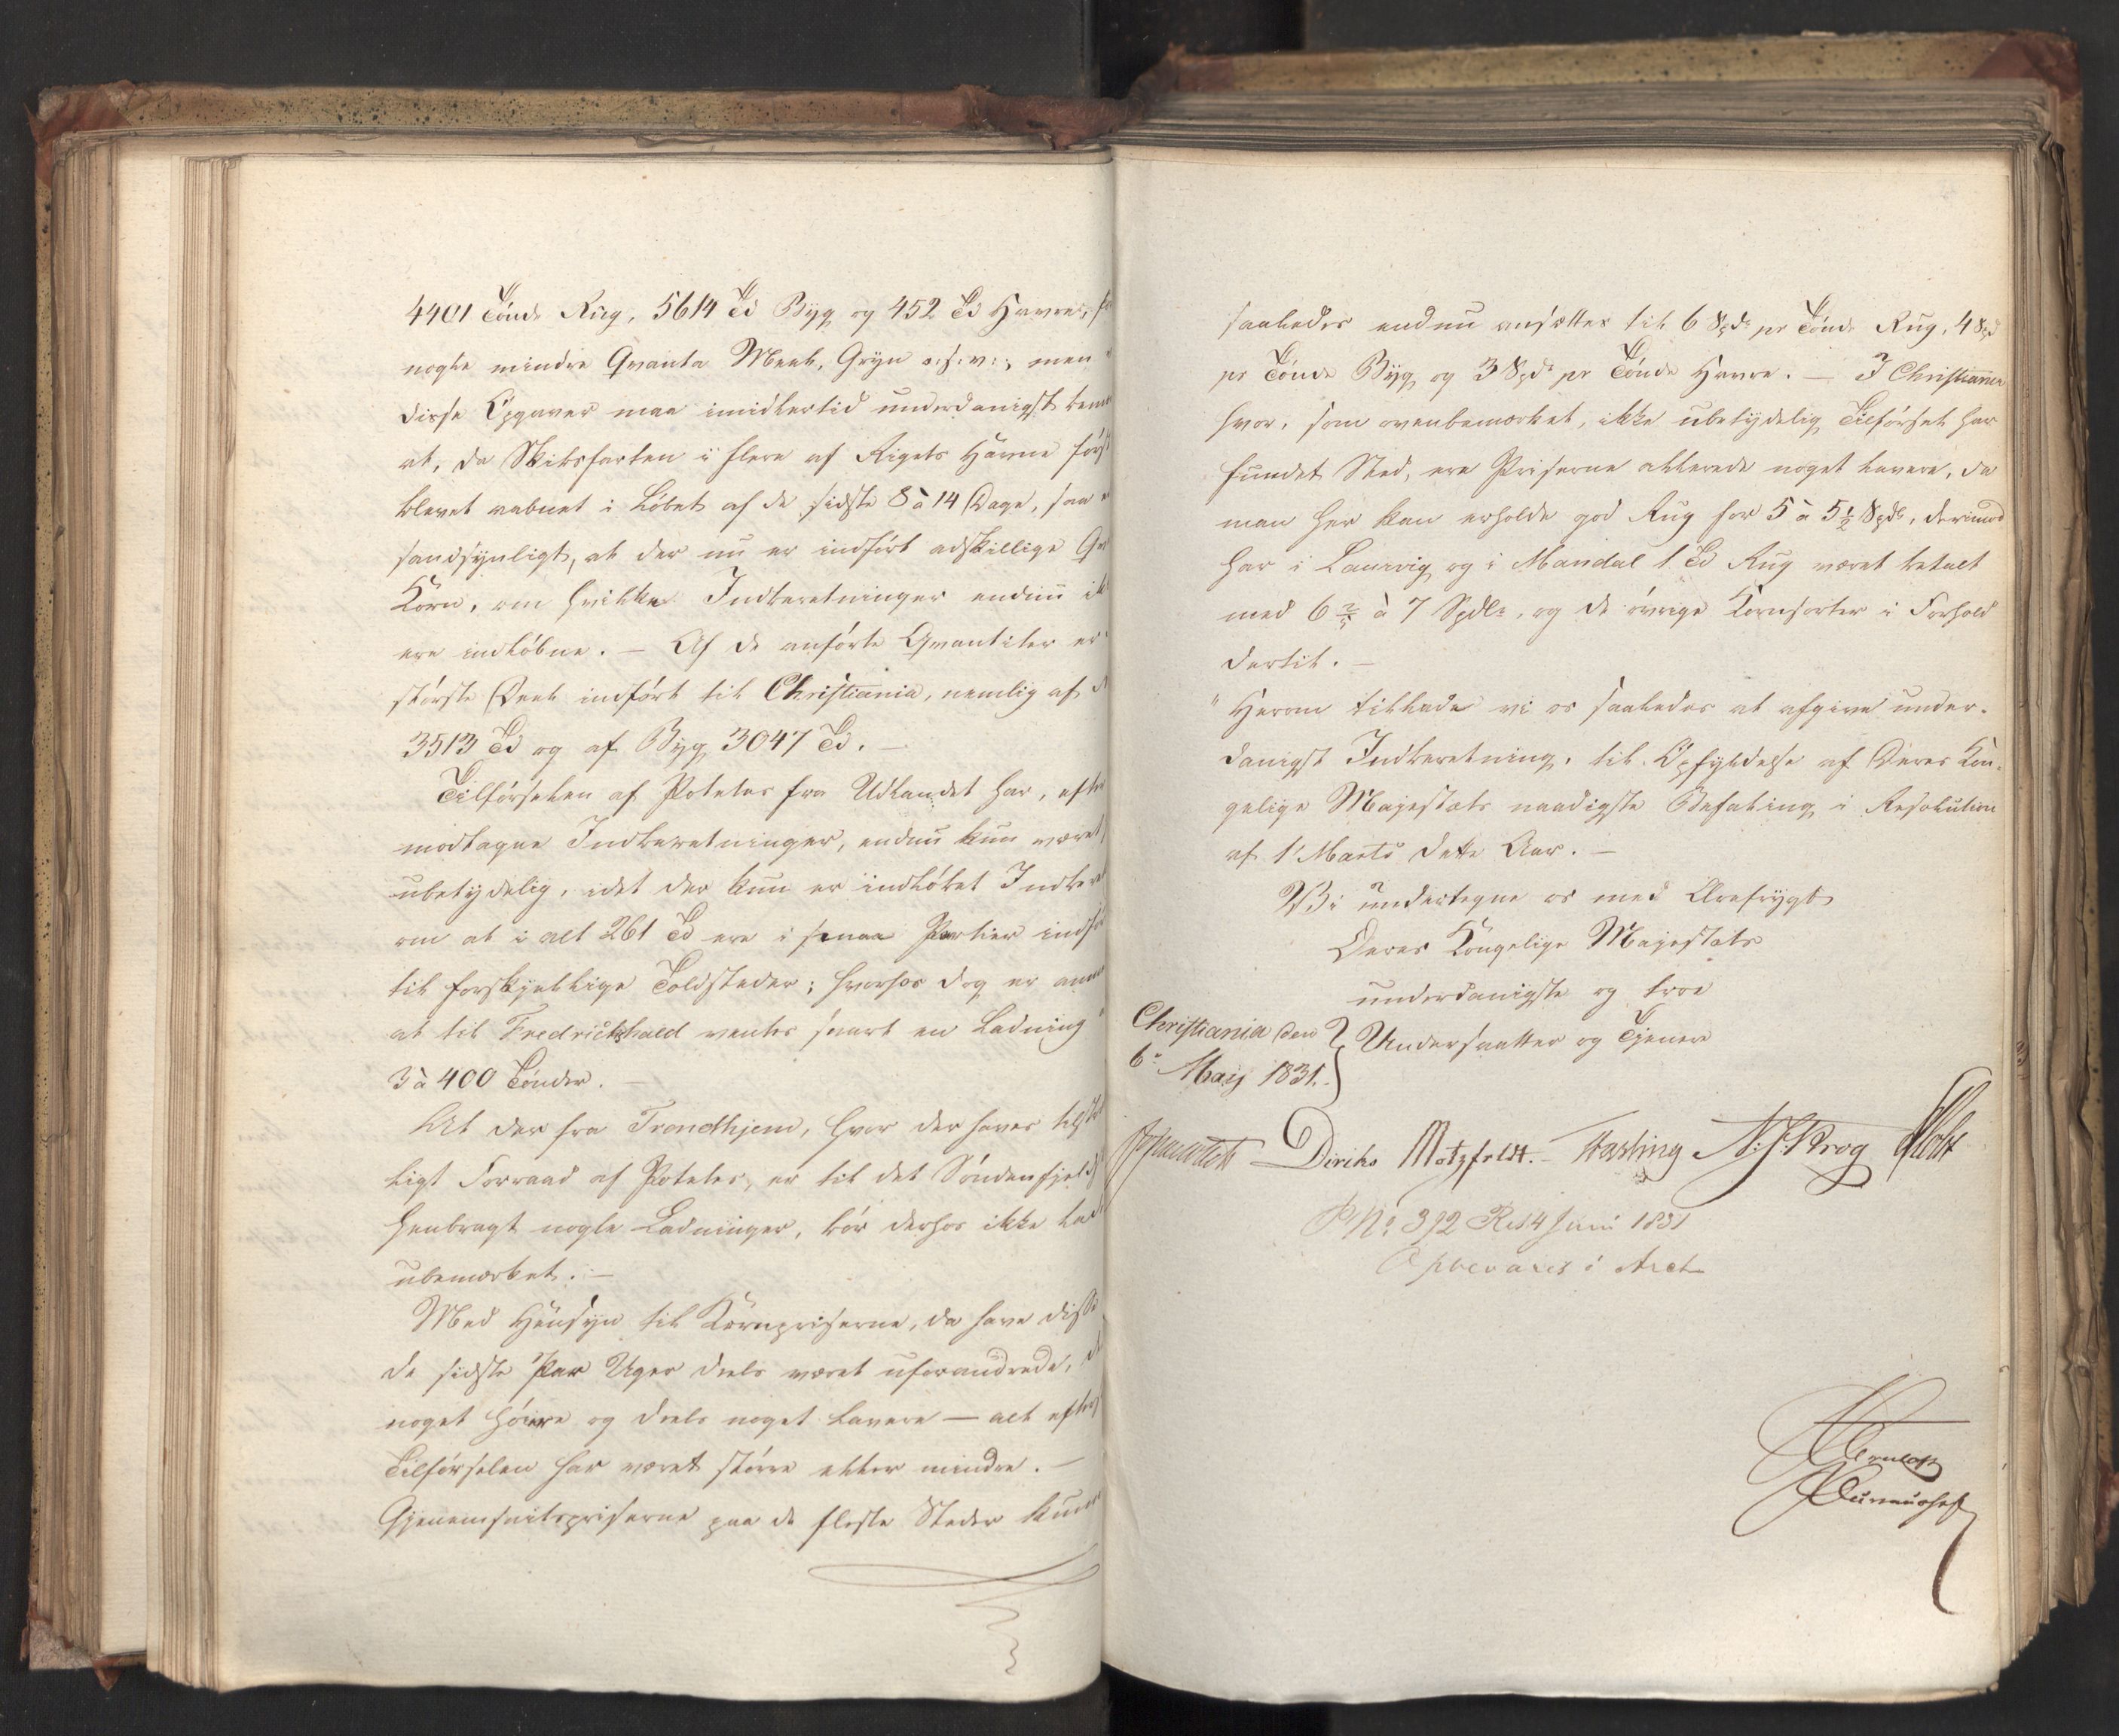 4401 Tönde Rug, 5614 Td Byg og 452 Td Havre,
nogle mindre Qvanta Meel, Gryn o: s: v:, men
disse Opgaver maa imidlertid underdanigst
at, da Skibsfarten i flere af Rigets Havne först
blevet aabnet i Löbet af de sidste 8 à 14 Dage, saa
sandsynligt, at der nu er indfört adskillige
Korn, om hvilke Indberetninger endnu
ere indlöbne. – Af de anförte Qvantiter er
störste Deel indfört til Christiania, nemlig af
3513 Td og af Byg 3047 Td. –
Tilförselen af Poteter fra Udlandet har, efter
modtagne Indberetninger, endnu kun været
ubetydelig, idet der kun er indlöbet
om at i alt 261 Td ere i smaa Partier
til forskjellige Toldsteder; hvorhos dog er
at til Fredrichshald ventes snart en Ladning
3 à 400 Tönder. –
At der fra Trondhjem, hvor der haves
ligt Forraad af Poteter, er til det
henbragt nogle Ladninger, bör derhos ikke
ubemærket. –
Med Hensyn til Kornpriserne, da have disse
de sidste Par Uger deels været uforandrede,
noget höiere og deels noget lavere – alt
Tilförselen har været större eller mindre. –
Gjenemsnitspriserne paa de fleste Steder kunne
saaledes endnu ansættes til 6 Spd: pr Tönde Rug, 4 Spd
pr Tönde Byg og 3 Spd: pr Tönde Havre. – I Christiania
hvor, som ovenbemærket, ikke ubetydelig Tilförsel har
fundet Sted, ere Priserne allerede noget lavere, da
man her kan erholde god Rug for 5 à 5½ Spdlr, derimod
har i Laurvig og i Mandal 1 Td Rug været betalt
med 6 2/5 à 7 Spdlr, og de övrige Kornsorter i Forhold
dertil. –
Herom tillade vi os saaledes at afgive under-
danigst Indberetning, til Opfyldelse af Deres Kon-
gelige Majestæts naadigste Befaling i Resolution
af 1 Marts dette Aar. –
Vi undertegne os med Ærefrygt
Deres Kongelige Majestæts
underdanigste og troe
Christiania den
6te Maij 1831.
Undersaatter og Tjenere
Diriks Motzfeldt. Fasting N. J. Krog Holst
P No. 392 Res 4 Juni 1831
Opbevares i Arch